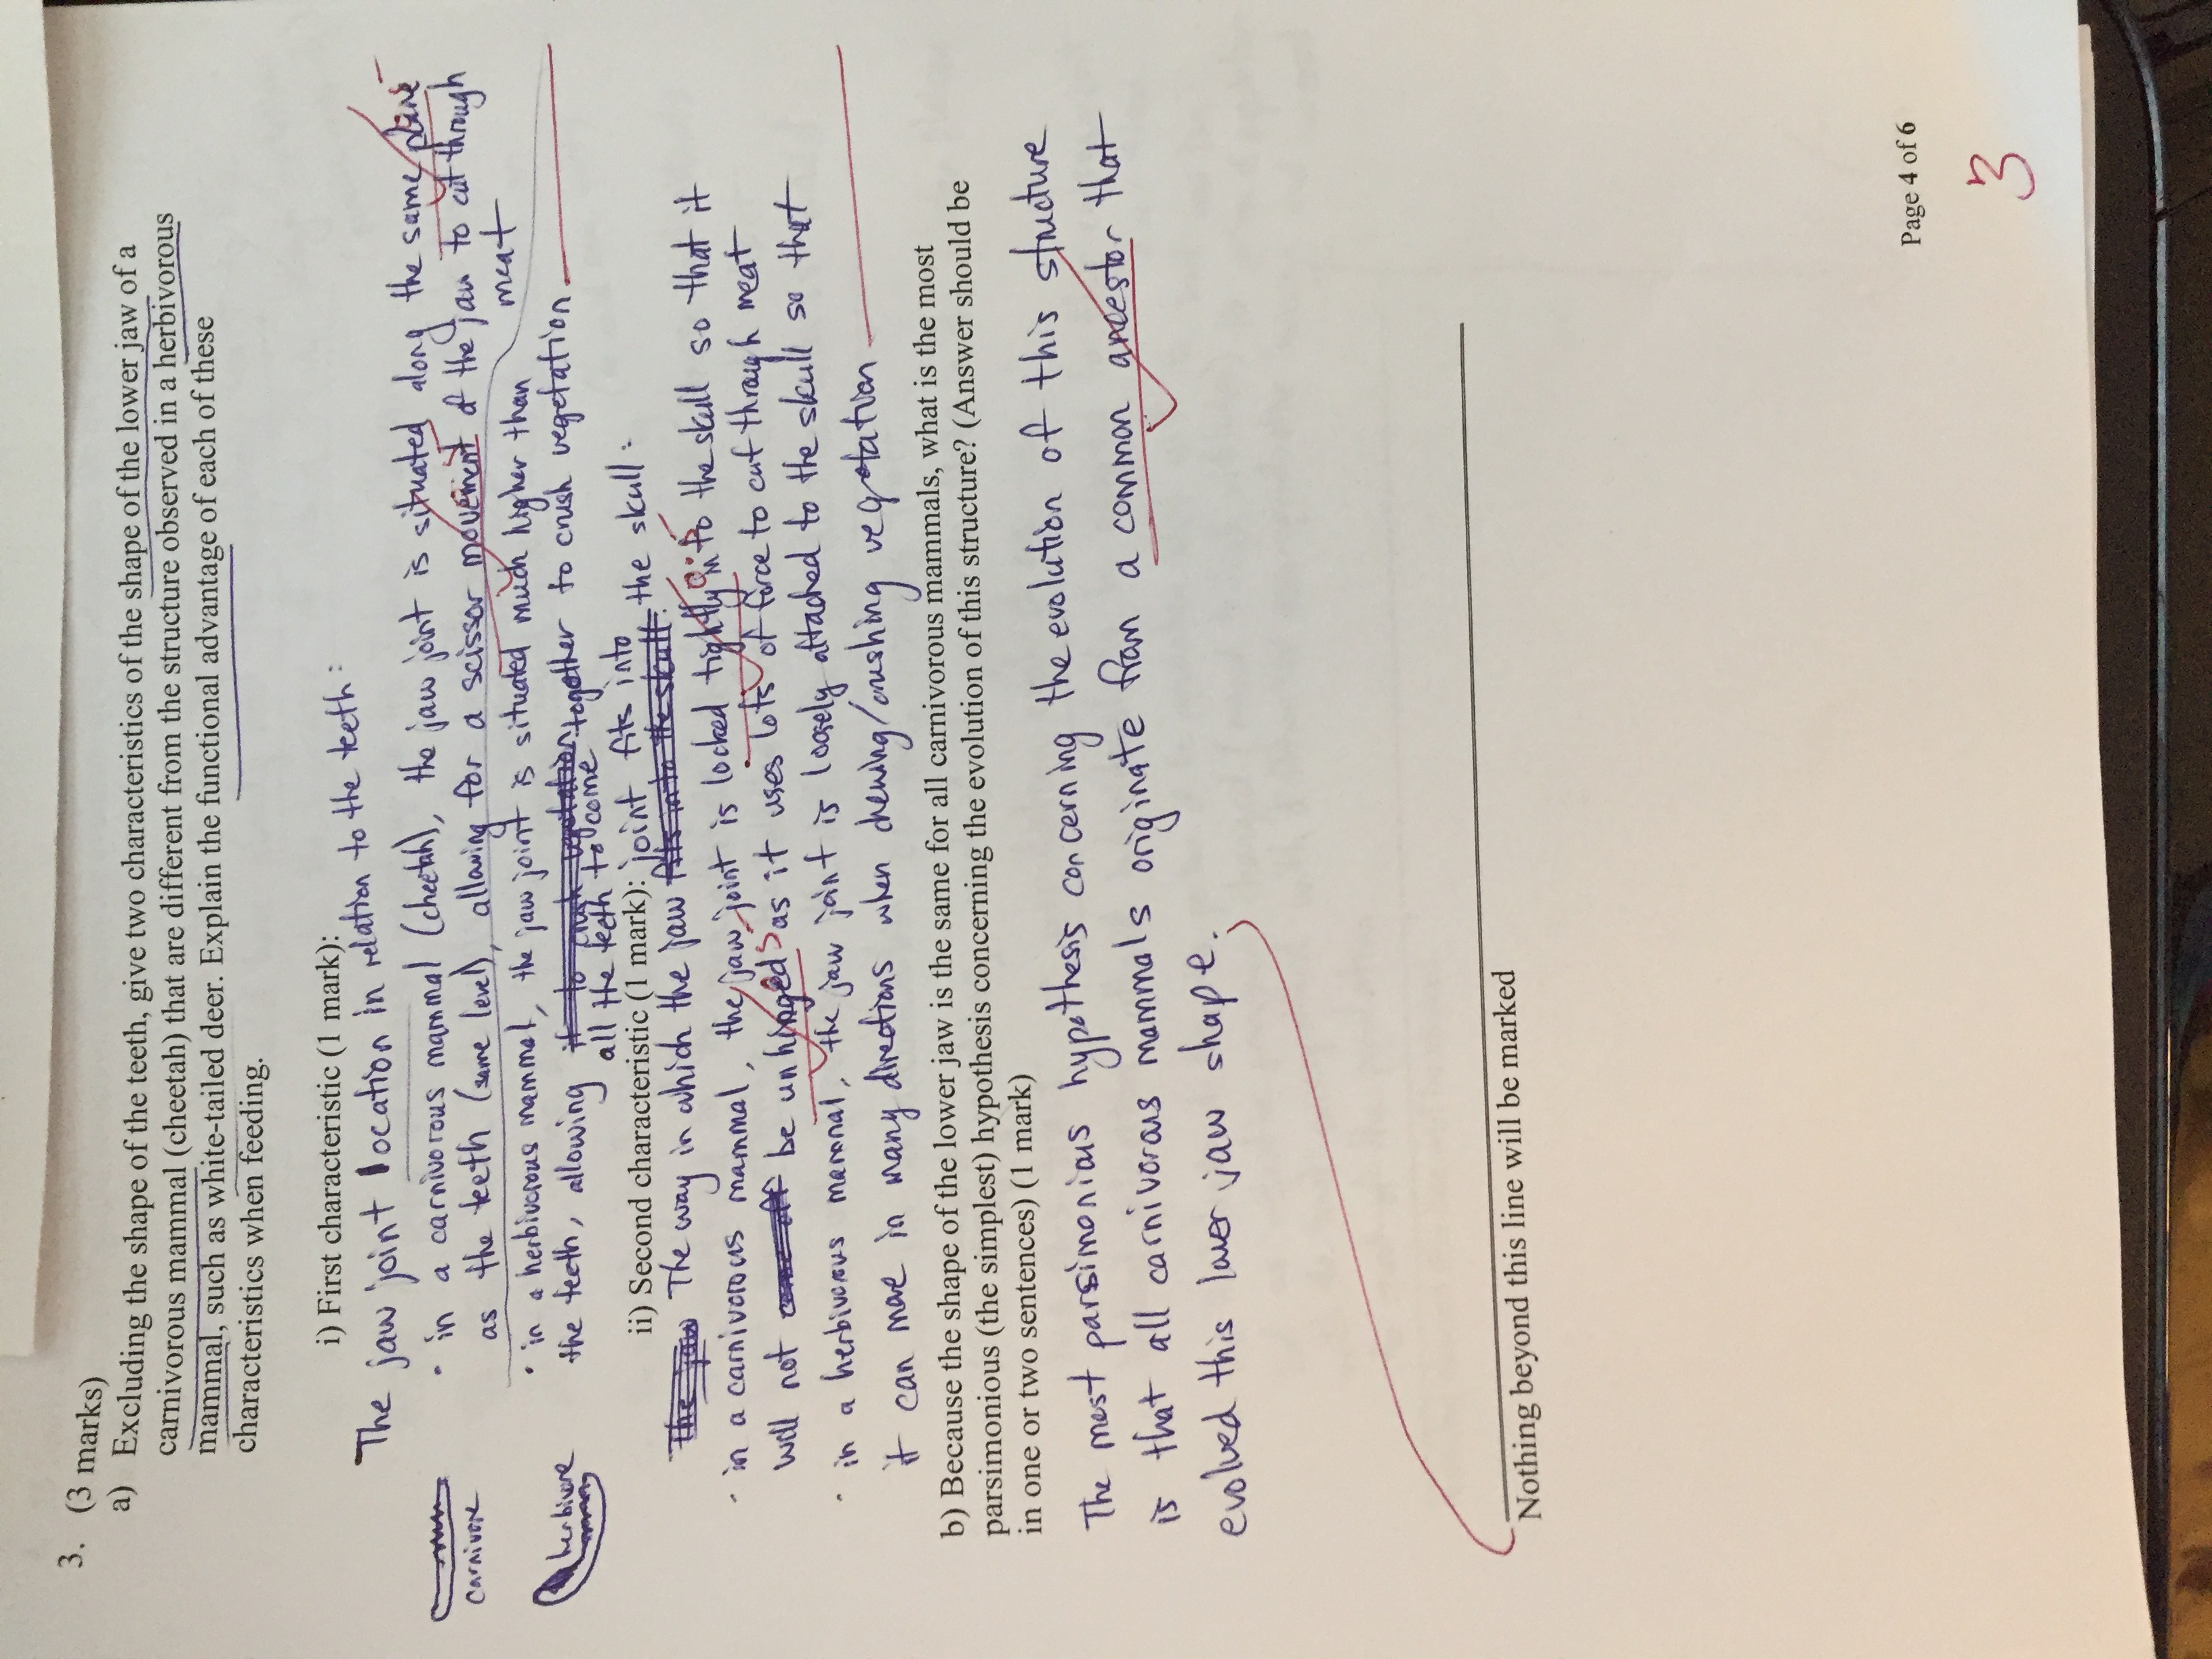 3. (3 marks)
a) Excluding the shape of the teeth, give two characteristics of the shape of the lower jaw of a
carnivorous mammal (cheetah) that are different from the structure observed in a herbivorous
mammal, such as white-tailed deer. Explain the functional advantage of each of these
characteristics when feeding.
i) First characteristic (1 mark):
The jaw joint location in relation to the teeth:
carnivore
· in a carnivorous mammal (cheetah), the jaw joint is situated along the same plane
as the teeth (same level), allowing for a scissor movement of the jaw to cut through
meat
· in a herbivorous mammal, the jaw joint is situated much higher than
herbivore
the teeth, allowing all the teeth to come together to crush vegetation
ii) Second characteristic (1 mark): joint fits into
The way in which the jaw the skull:
· in a carnivorous mammal, the jaw joint is locked tightly into the skull so that it
will not be unhinged as it uses lots of force to cut through meat
· in a herbivorous mammal, the jaw joint is loosely attached to the skull so that
it can move in many directions when chewing/crushing vegetation
b) Because the shape of the lower jaw is the same for all carnivorous mammals, what is the most
parsimonious (the simplest) hypothesis concerning the evolution of this structure? (Answer should be
in one or two sentences) (1 mark)
The most parsimonious hypothesis concerning the evolution of this structure
is that all carnivorous mammals originate from a common ancestor that
evolved this lower jaw shape.
Nothing beyond this line will be marked
Page 4 of 6
3